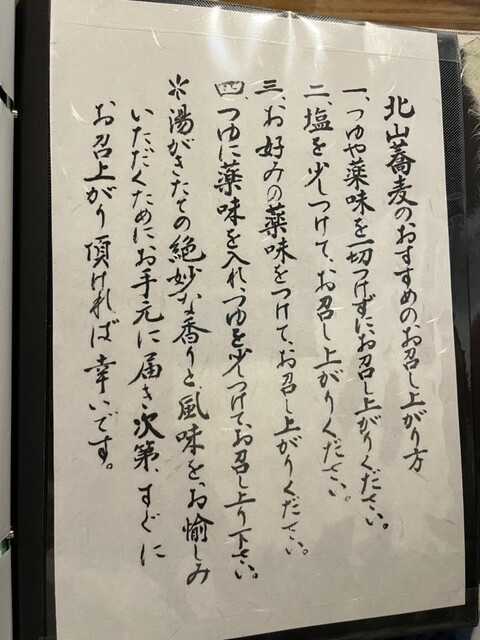 北山蕎麦のおすすめのお召し上がり方
一、つゆや薬味を一切つけずにお召し上がりください。
二、塩を少しつけて、お召し上がりください。
三、お好みの薬味をつけて、お召し上がりください。
四、つゆに薬味を入れ、つゆを少しつけて、お召し上り下さい。
＊湯がきたての絶妙な香りと、風味を、お愉しみ
いただくためにお手元に届き次第、すぐに
お召上がり頂ければ幸いです。